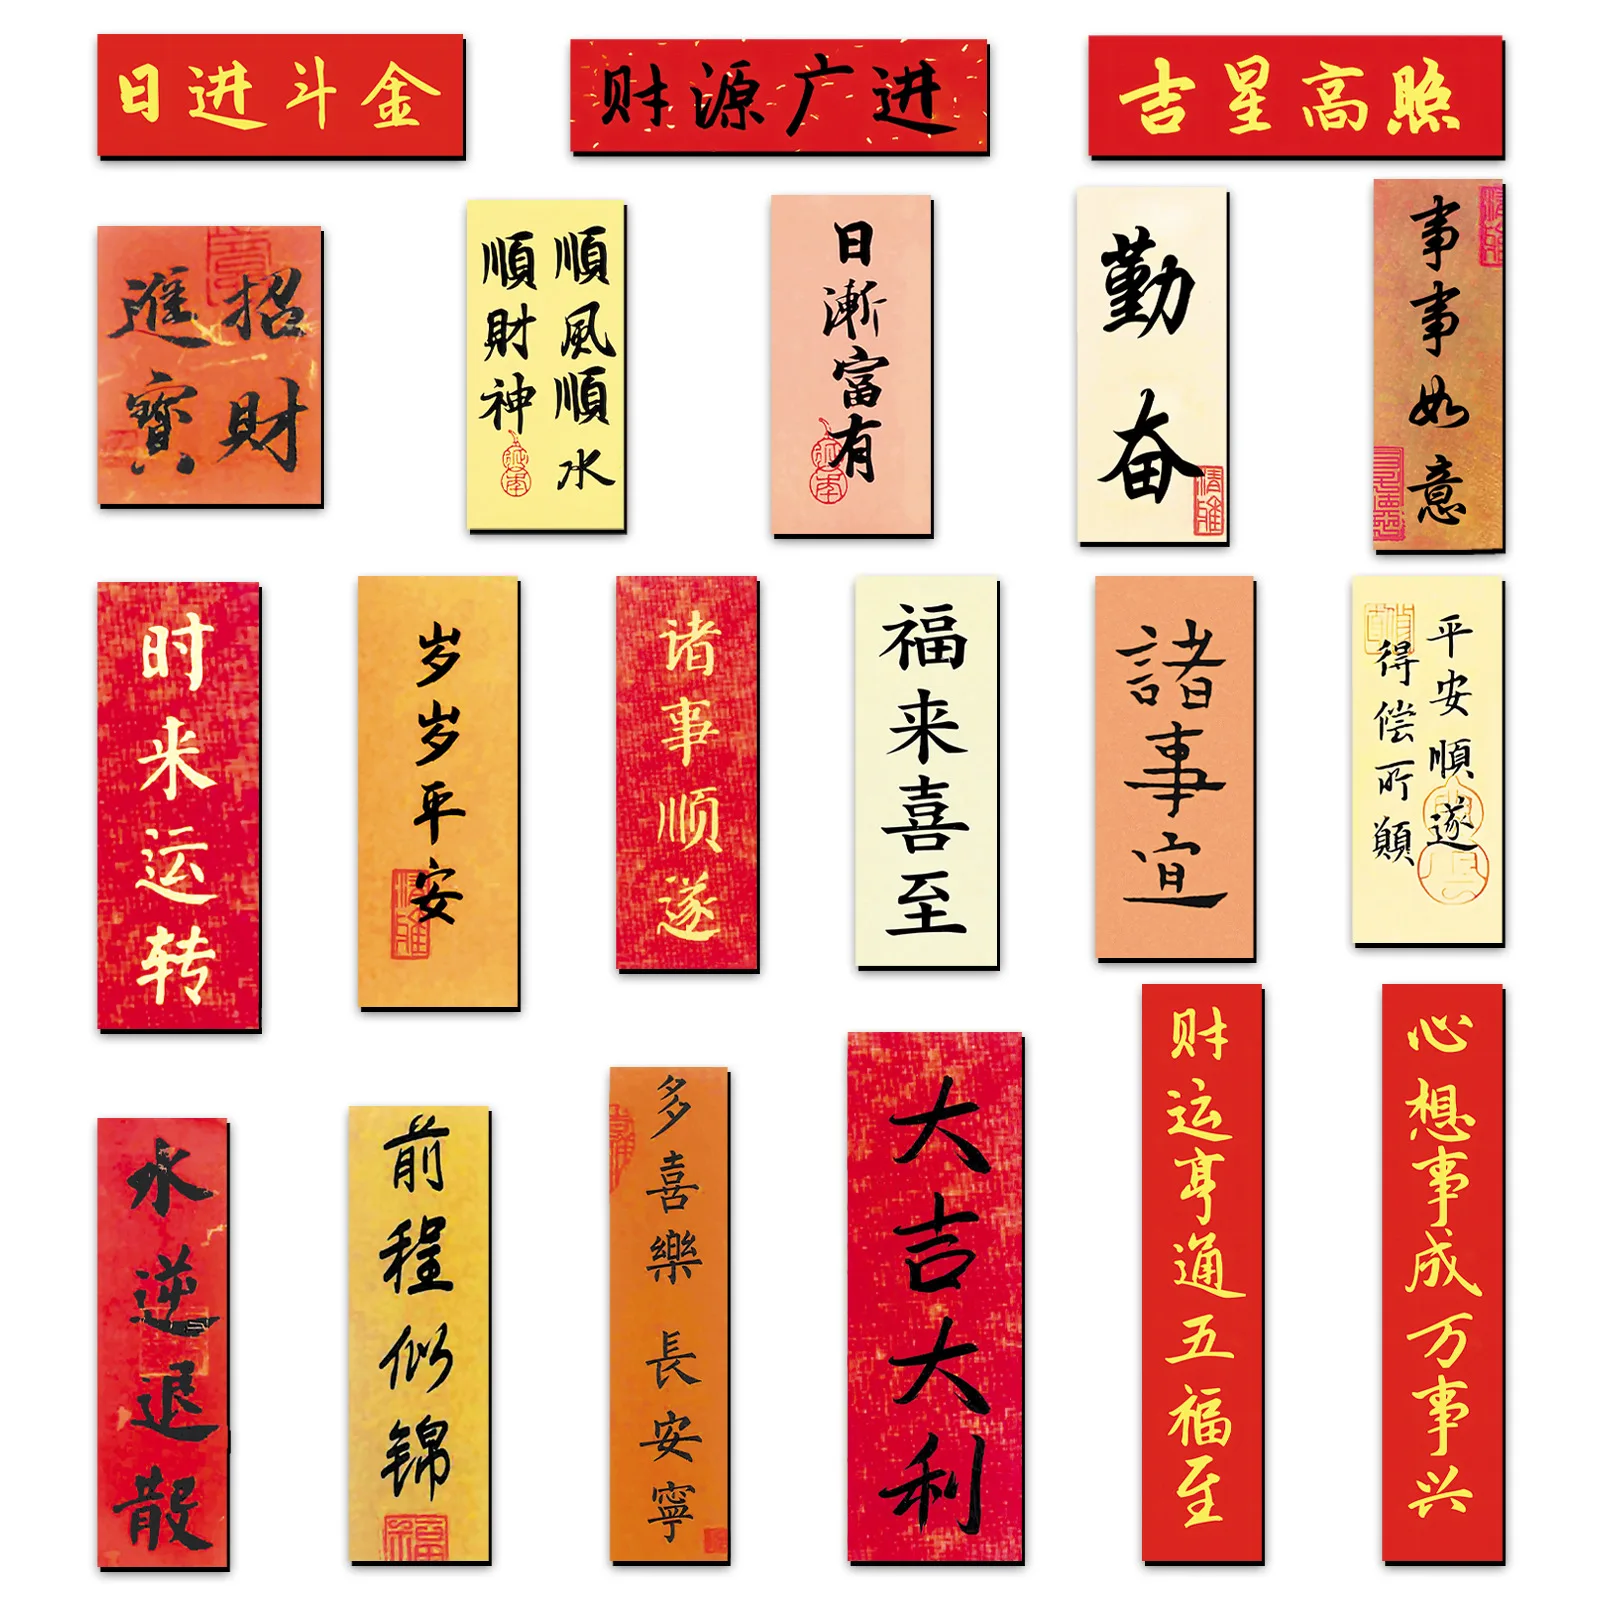 日进斗金
财源广进
吉星高照
招财
進寳
順風順水
順財神
日漸富有
勤奋
事事如意
时来运转
岁岁平安
诸事顺遂
福来喜至
諸事宜
平安順遂
得偿所願
水逆退散
前程似锦
多喜樂 長安寧
大吉大利
财运亨通五福至
心想事成万事兴